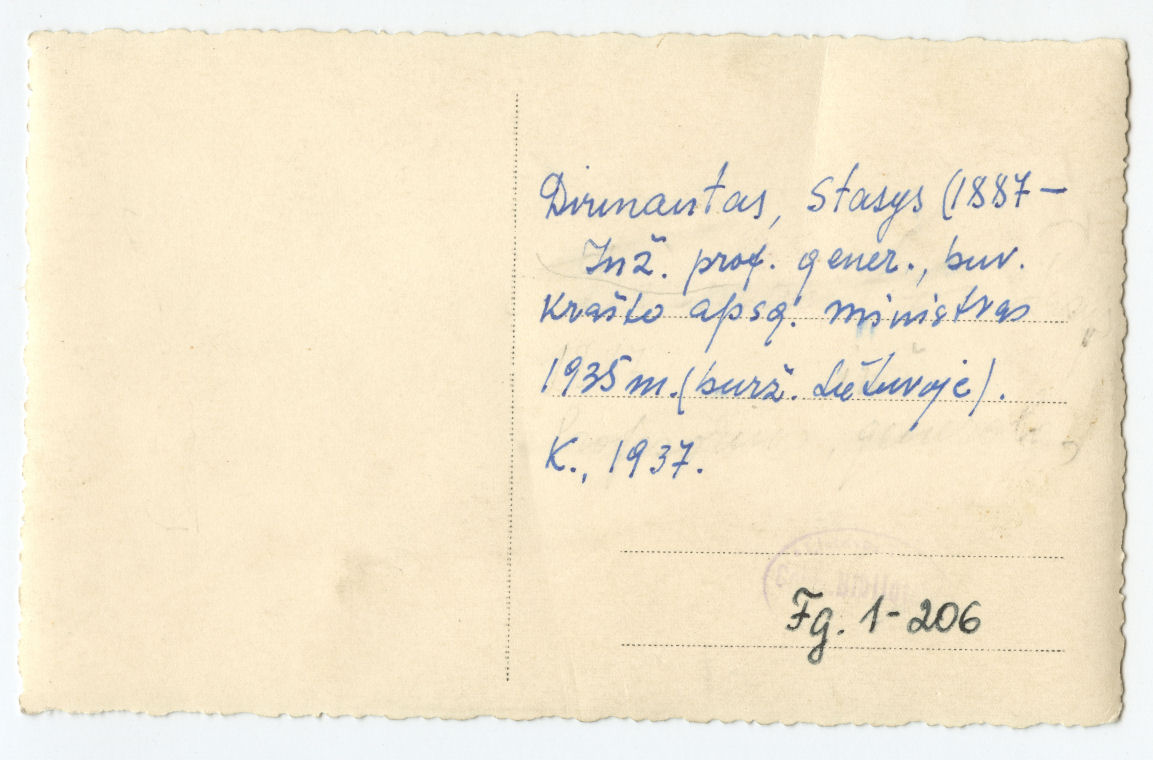 Dirmantas, Stasys (1887–
Inž. prof. gener., buv.
Krašto apsg. ministras
1935 m. (burž. Lietuvoje).
K., 1937.
Fg. 1-206